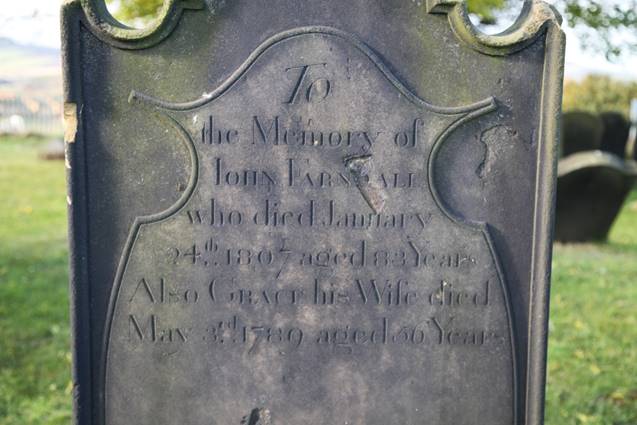 To
the Memory of
JOHN FARNDALL
who died January
24th. 1807 aged 83 Years
Also GRACE his Wife died
May 3rd. 1789 aged 66 Years